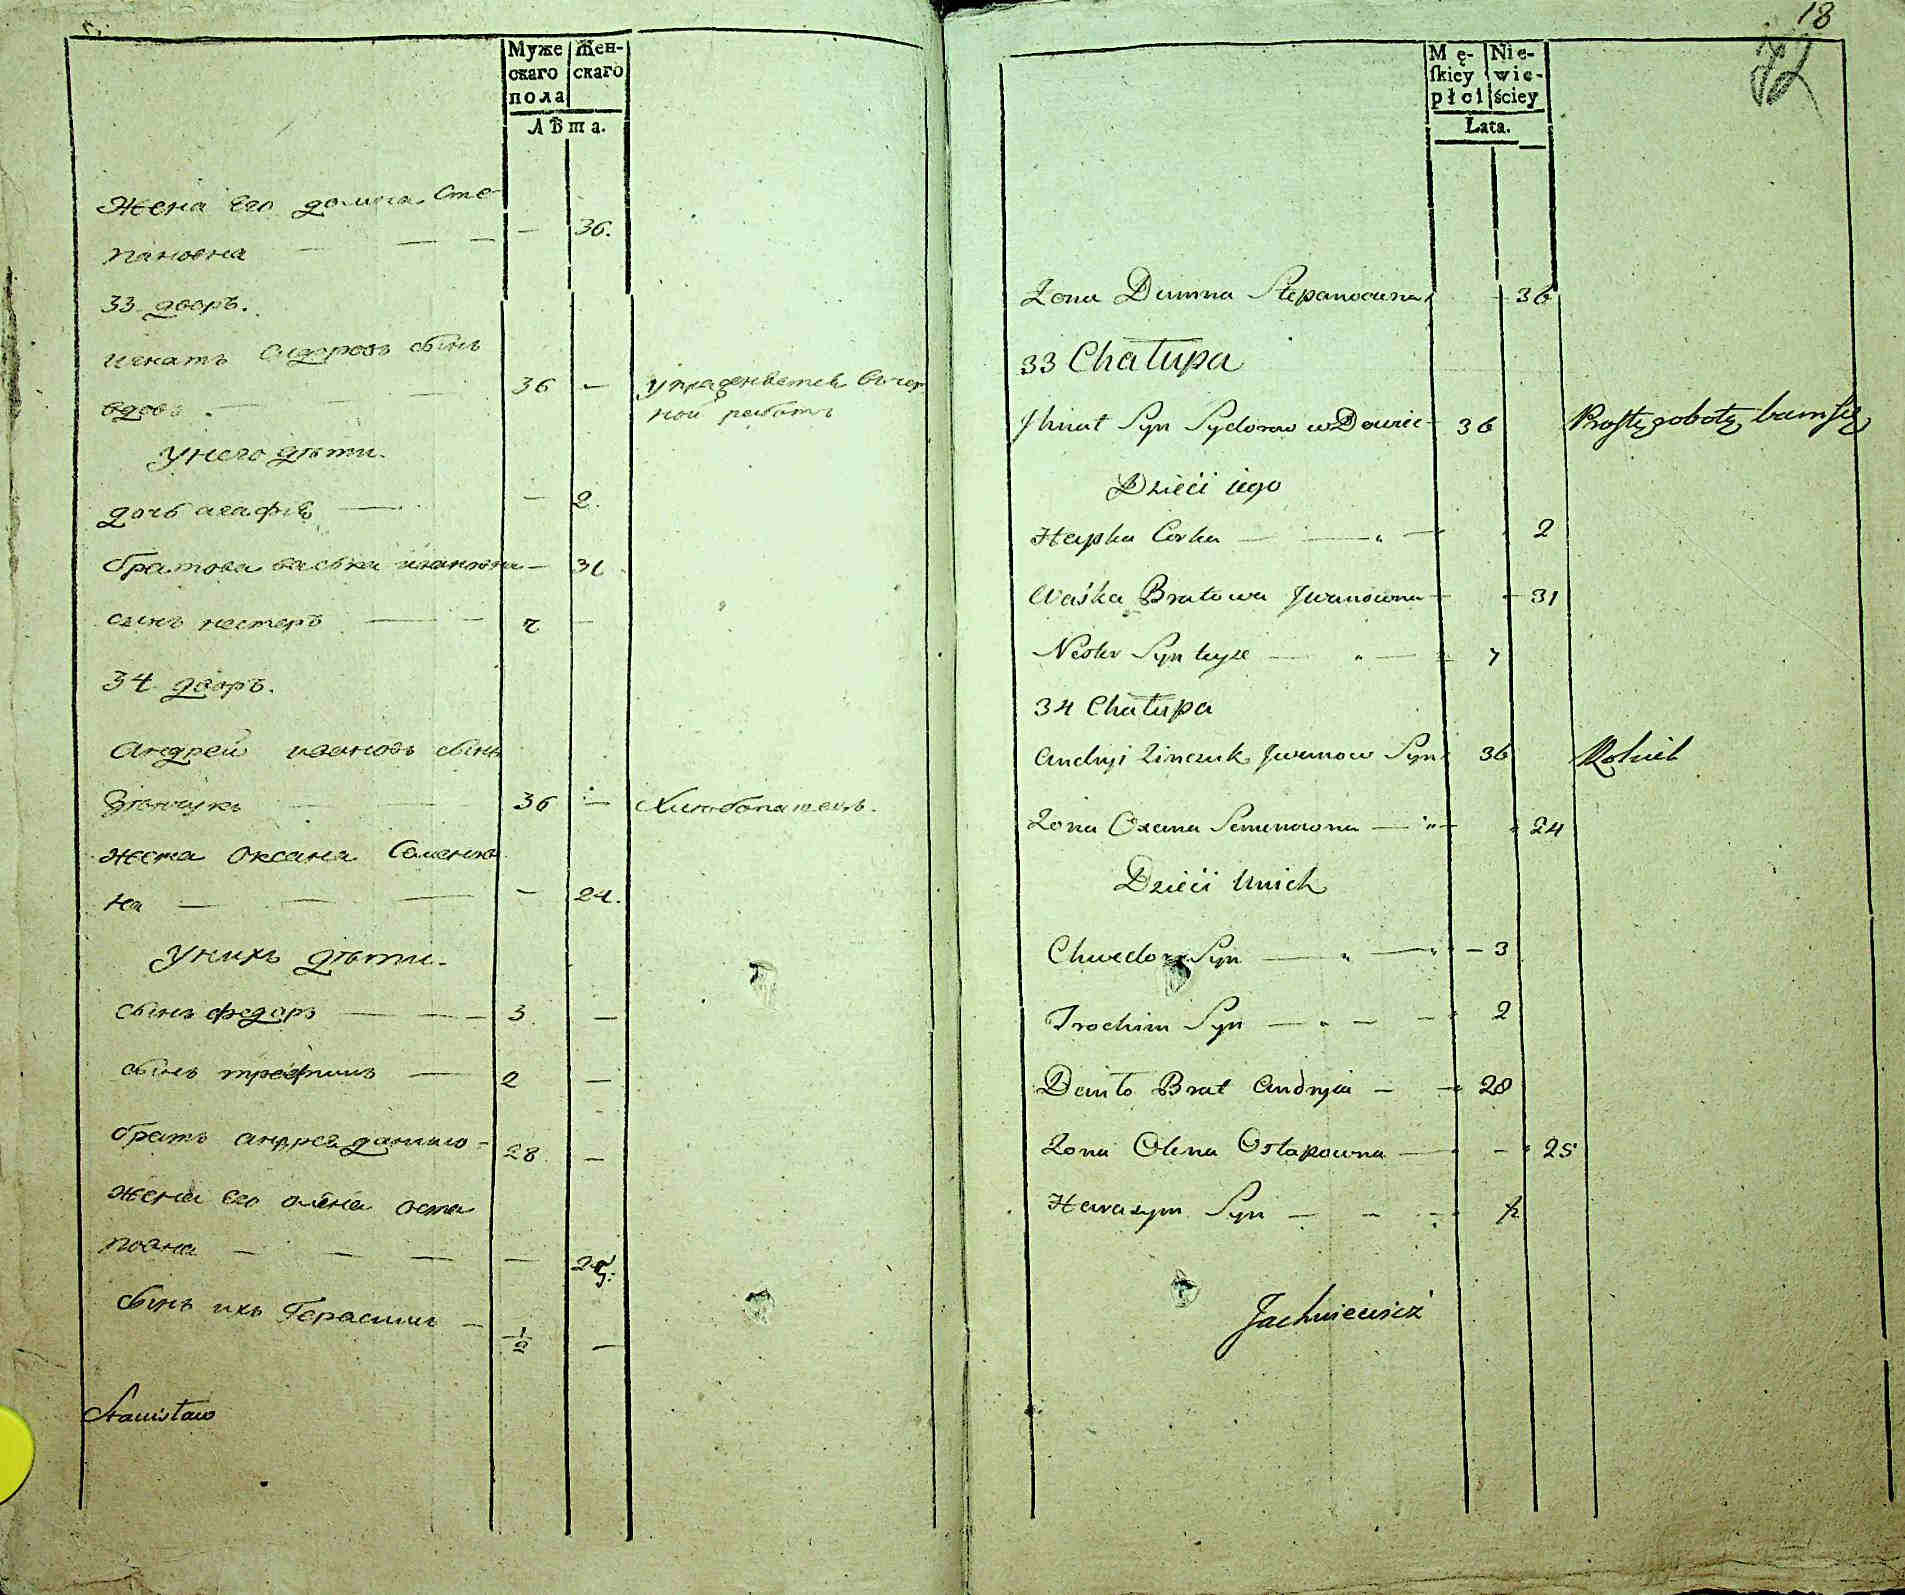 Муже
скаго
пола
Жен-
скаго
Лѣта.
Жена Его домна Сте-
пановна — — — — 36.
33 дворъ.
игнатъ Сидоровъ сынъ
вдовъ — — — 36 — упраденяется въ чер
ной работѣ
у него дѣти.
дочь агафія — — 2.
братова васька ивановна — 31
сынъ нестеръ — — 7 —
34 дворъ.
Андрей ивановъ сынъ
Зѣнчукъ — — 36 — Хлѣбопашецъ.
жена Оксана Семенов
на — — — — 24.
у нихъ дѣти.
сынъ федоръ — — — 3 —
сынъ трофимъ — 2 —
братъ андрея данило — 28 —
жена Его олена оста
повна — — — — 25.
сынъ ихъ Герасимъ — 1/2 —
Stanisław
18
72
Mę-
skiey
płci
Nie-
wie-
ściey
Lata.
Zona Dumna Stepanowna — 36
33 Chałupa
Ihnat Syn Sydorow wDowiec 36 Prostę robotę bawi się
Dzieci iego
Hapka Corka — — „ — 2
Waśka Bratowa Jwanowna — — 31
Nester Syn teyże — „ — — 7
34 Chałupa
Andryi Zinczuk Jwanow Syn 36 Rolnik
Zona Oxana Semenowna — „ — 24
Dzieci Unich
Chwedor Syn — „ — „ — 3
Trochim Syn — „ — — 2
Daniło Brat Andryia — — 28
Zona Olena Ostapowna — — 25
Harasym Syn — — — 1/2
Jachniewicz